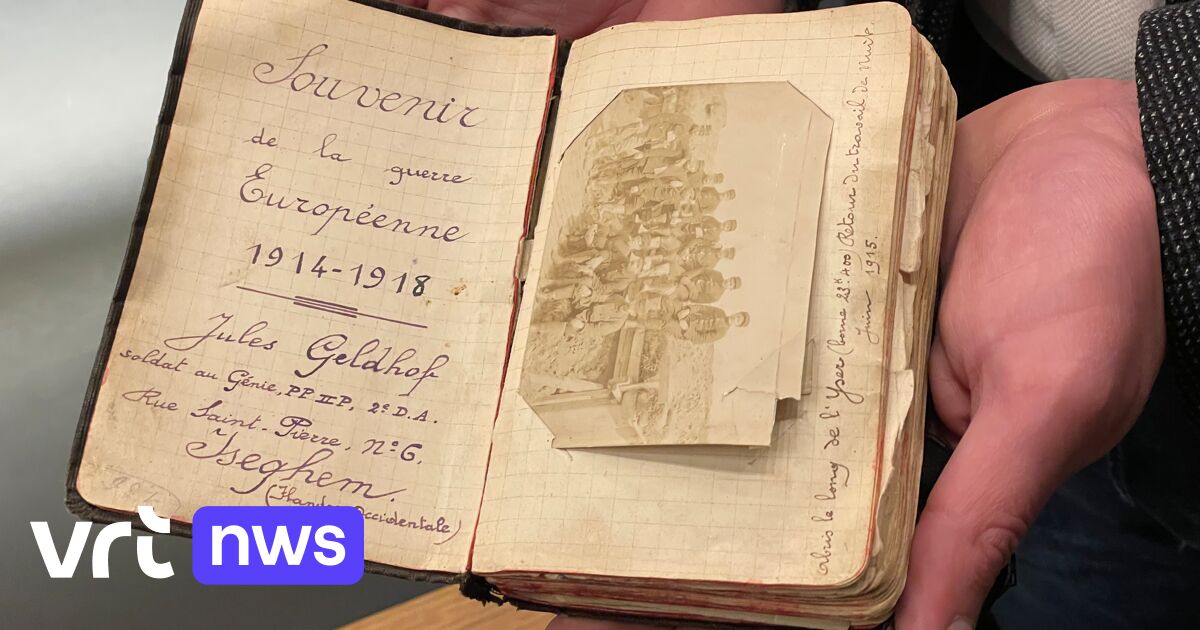 Souvenir
de la guerre
Européenne
1914-1918
Jules Geldhof
soldat au Génie, PP II P, 2e D.A.
Rue Saint-Pierre, No 6.
Iseghem.
(Flandre Occidentale)
abris le long de l'Yser (borne 23k 400) Retour du travail de Nuit.
Juin 1915.
vrt nws